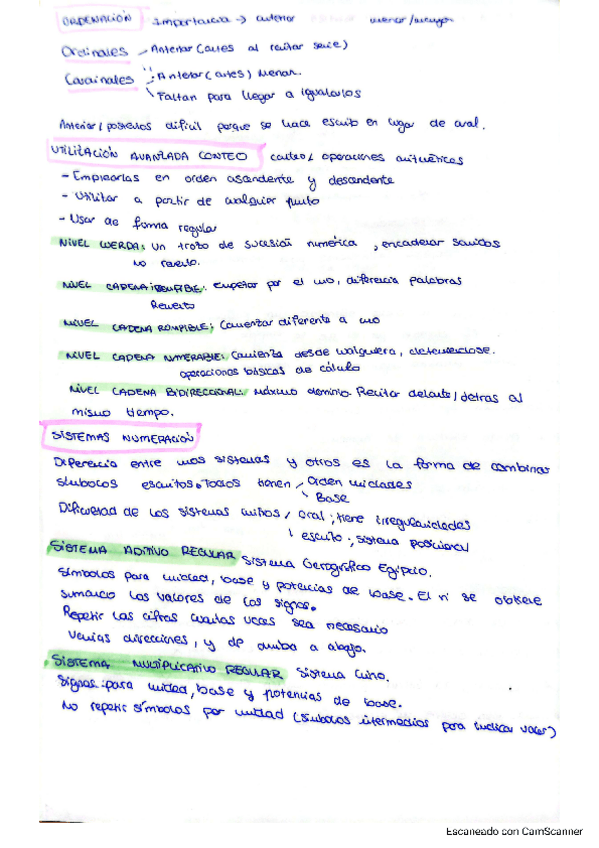 ORDENACIÓN Importancia → anterior menor/mayor
Ordinales - Anterior (antes al recitar serie)
Cardinales Anterior (antes) Menor.
Faltan para llegar a igualarlos
Anterior/ posterios difícil porque se hace escrito en lugar de oral.
UTILIZACIÓN AVANZADA CONTEO conteo/ operaciones aritméticas
- Emplearlas en orden ascendente y descendente
- Utilizar a partir de cualquier punto
- Usar de forma regular
NIVEL CUERDA: Un trozo de sucesión numérica, encadenar sonidos
no resuelto.
NIVEL CADENA: Empezar por el uno, diferencia palabras
Resuelto
NIVEL CADENA ROMPIBLE: Comenzar diferente a uno
NIVEL CADENA NUMERABLE: Comienza desde cualquiera, deteniendose.
operaciones básicas de cálculo
NIVEL CADENA BIDIRECCIONAL: Máximo dominio. Recitar delante/detras al
mismo tiempo.
SISTEMAS NUMERACIÓN
Diferencia entre unos sistemas y otros es la forma de combinar
símbolos escritos. Todos tienen Orden unidades
Base
Dificultad de los sistemas niños oral; tiene irregularidades
escrito; sistema posicional
SISTEMA ADITIVO REGULAR Sistema Egipcio.
Símbolos para unidad, base y potencias de base. El nº se obtiene
sumando los valores de los signos.
Repetir las cifras cuantas veces sea necesario
Varias direcciones, y de arriba a abajo.
SISTEMA MULTIPLICATIVO REGULAR Sistema Chino.
Signos para unidad, base y potencias de base.
No repetir símbolos por unidad (símbolos intermedios para indicar valor)
Escaneado con CamScanner